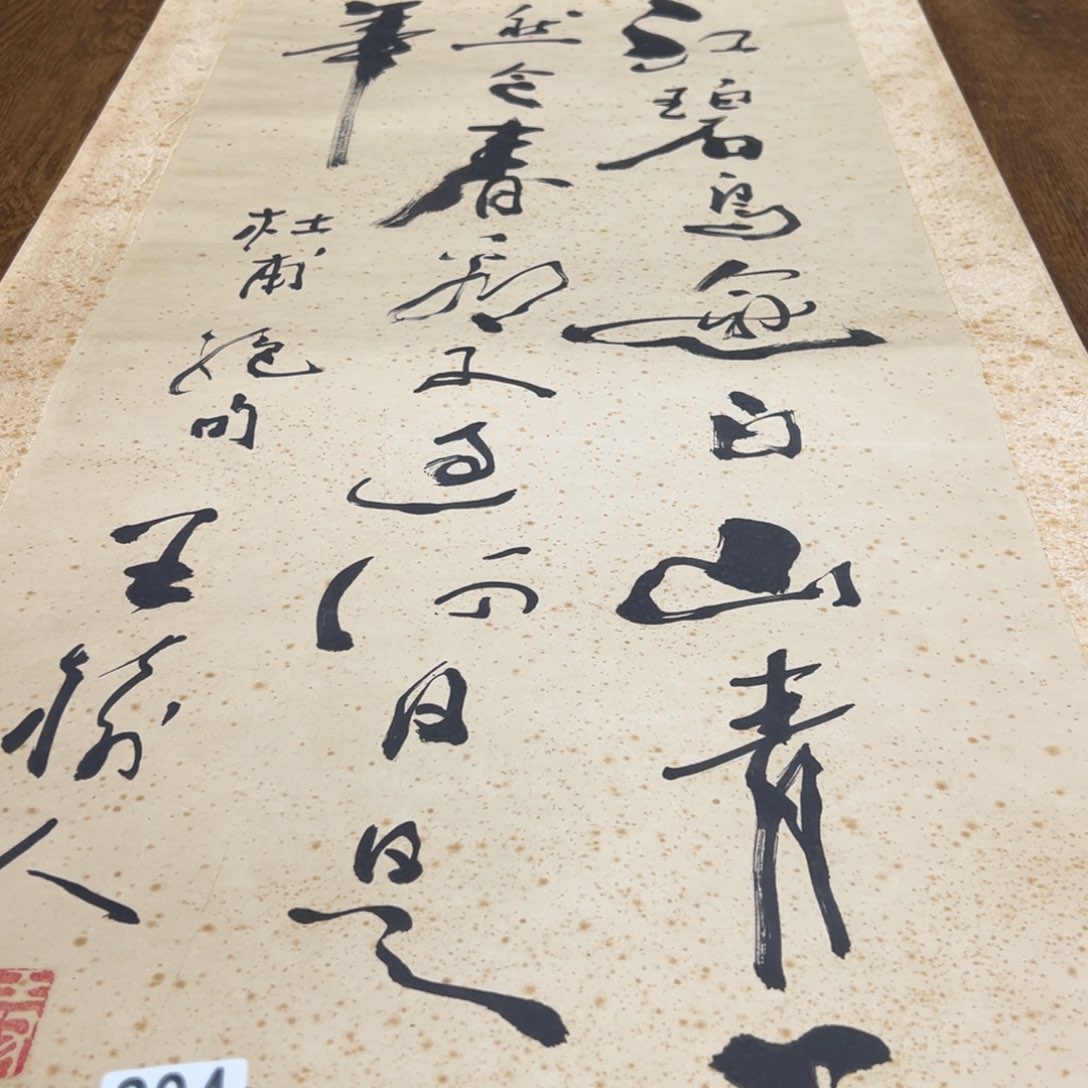 江碧鳥逾白山青
然今春看又過何日是
年
杜甫絕句 王人